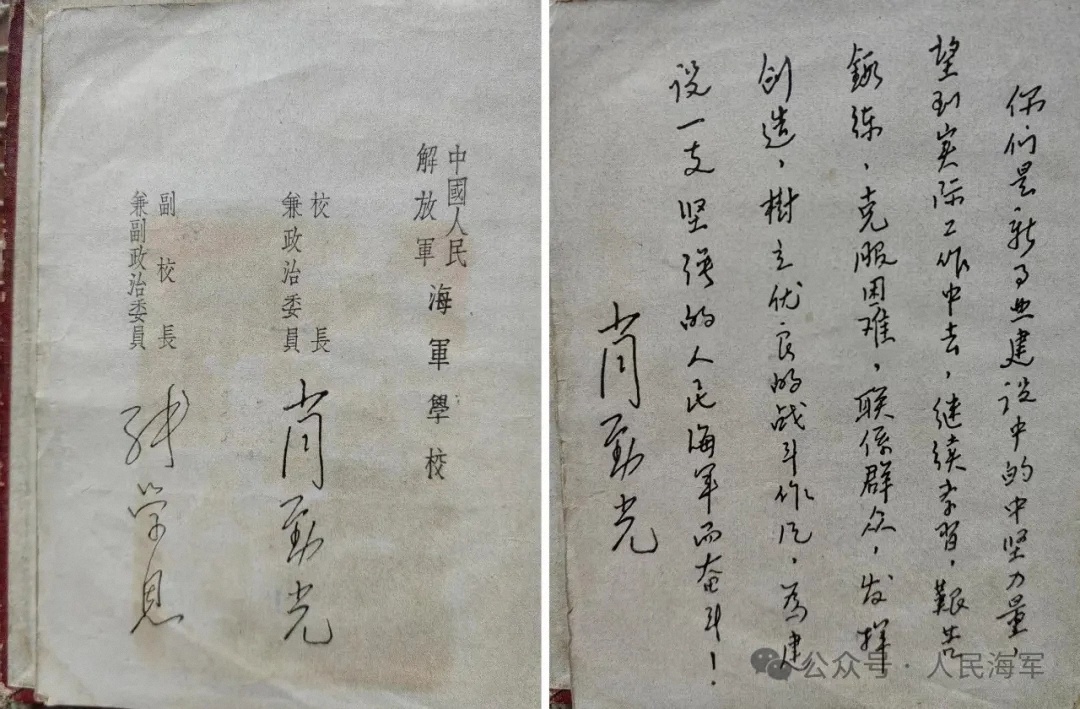 中國人民
解放軍
海軍學校
校長
兼政治委員
肖勁光
副校長
兼副政治委員
张学思
你们是新事业建设中的中坚力量，
望到实际工作中去，继续学習，艱苦
鍛练，克服困难，联係群众，发揮
创造，樹立优良的战斗作风，為建
设一支坚强的人民海军而奋斗！
肖勁光
公众号·人民海军